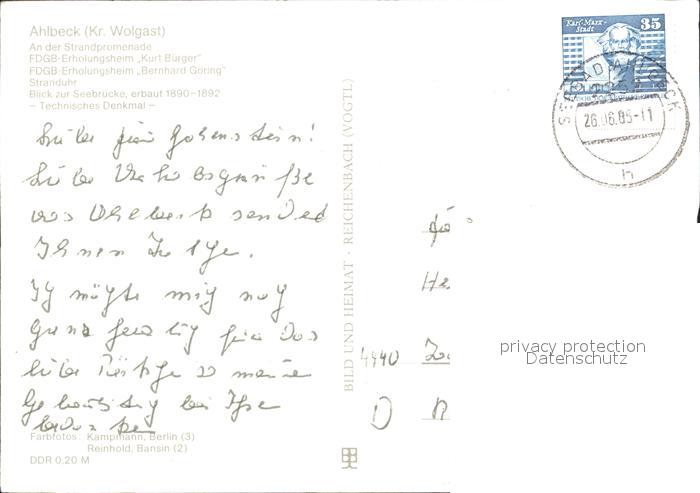 Ahlbeck (Kr. Wolgast)
An der Strandpromenade
FDGB-Erholungsheim „Kurt Bürger"
FDGB-Erholungsheim „Bernhard Göring"
Stranduhr
Blick zur Seebrücke, erbaut 1890-1892
– Technisches Denkmal –
Liebe Frau Hohenstein!
Liebe Urlaubsgrüße
aus Ahlbeck sendet
Ihnen
Ich möchte mich noch
ganz herzlich für das
liebe zu meine
Geburtstag bei Ihne
bedanken
Farbfotos: Kampmann, Berlin (3)
Reinhold, Bansin (2)
DDR 0,20 M
BILD UND HEIMAT · REICHENBACH (VOGTL)
Karl-Marx-Stadt 35
SEEBAD AHLBECK
26.06.85-11
h
He
4440
D
privacy protection
Datenschutz